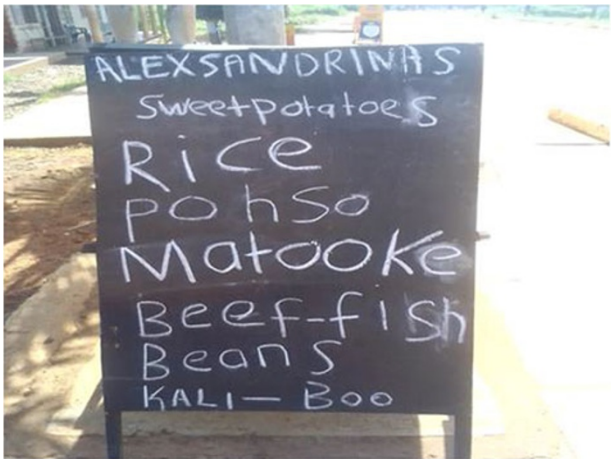 ALEXSANDRINAS
sweetpotatoes
Rice
pohso
Matooke
Beef-fish
Beans
KALI-Boo